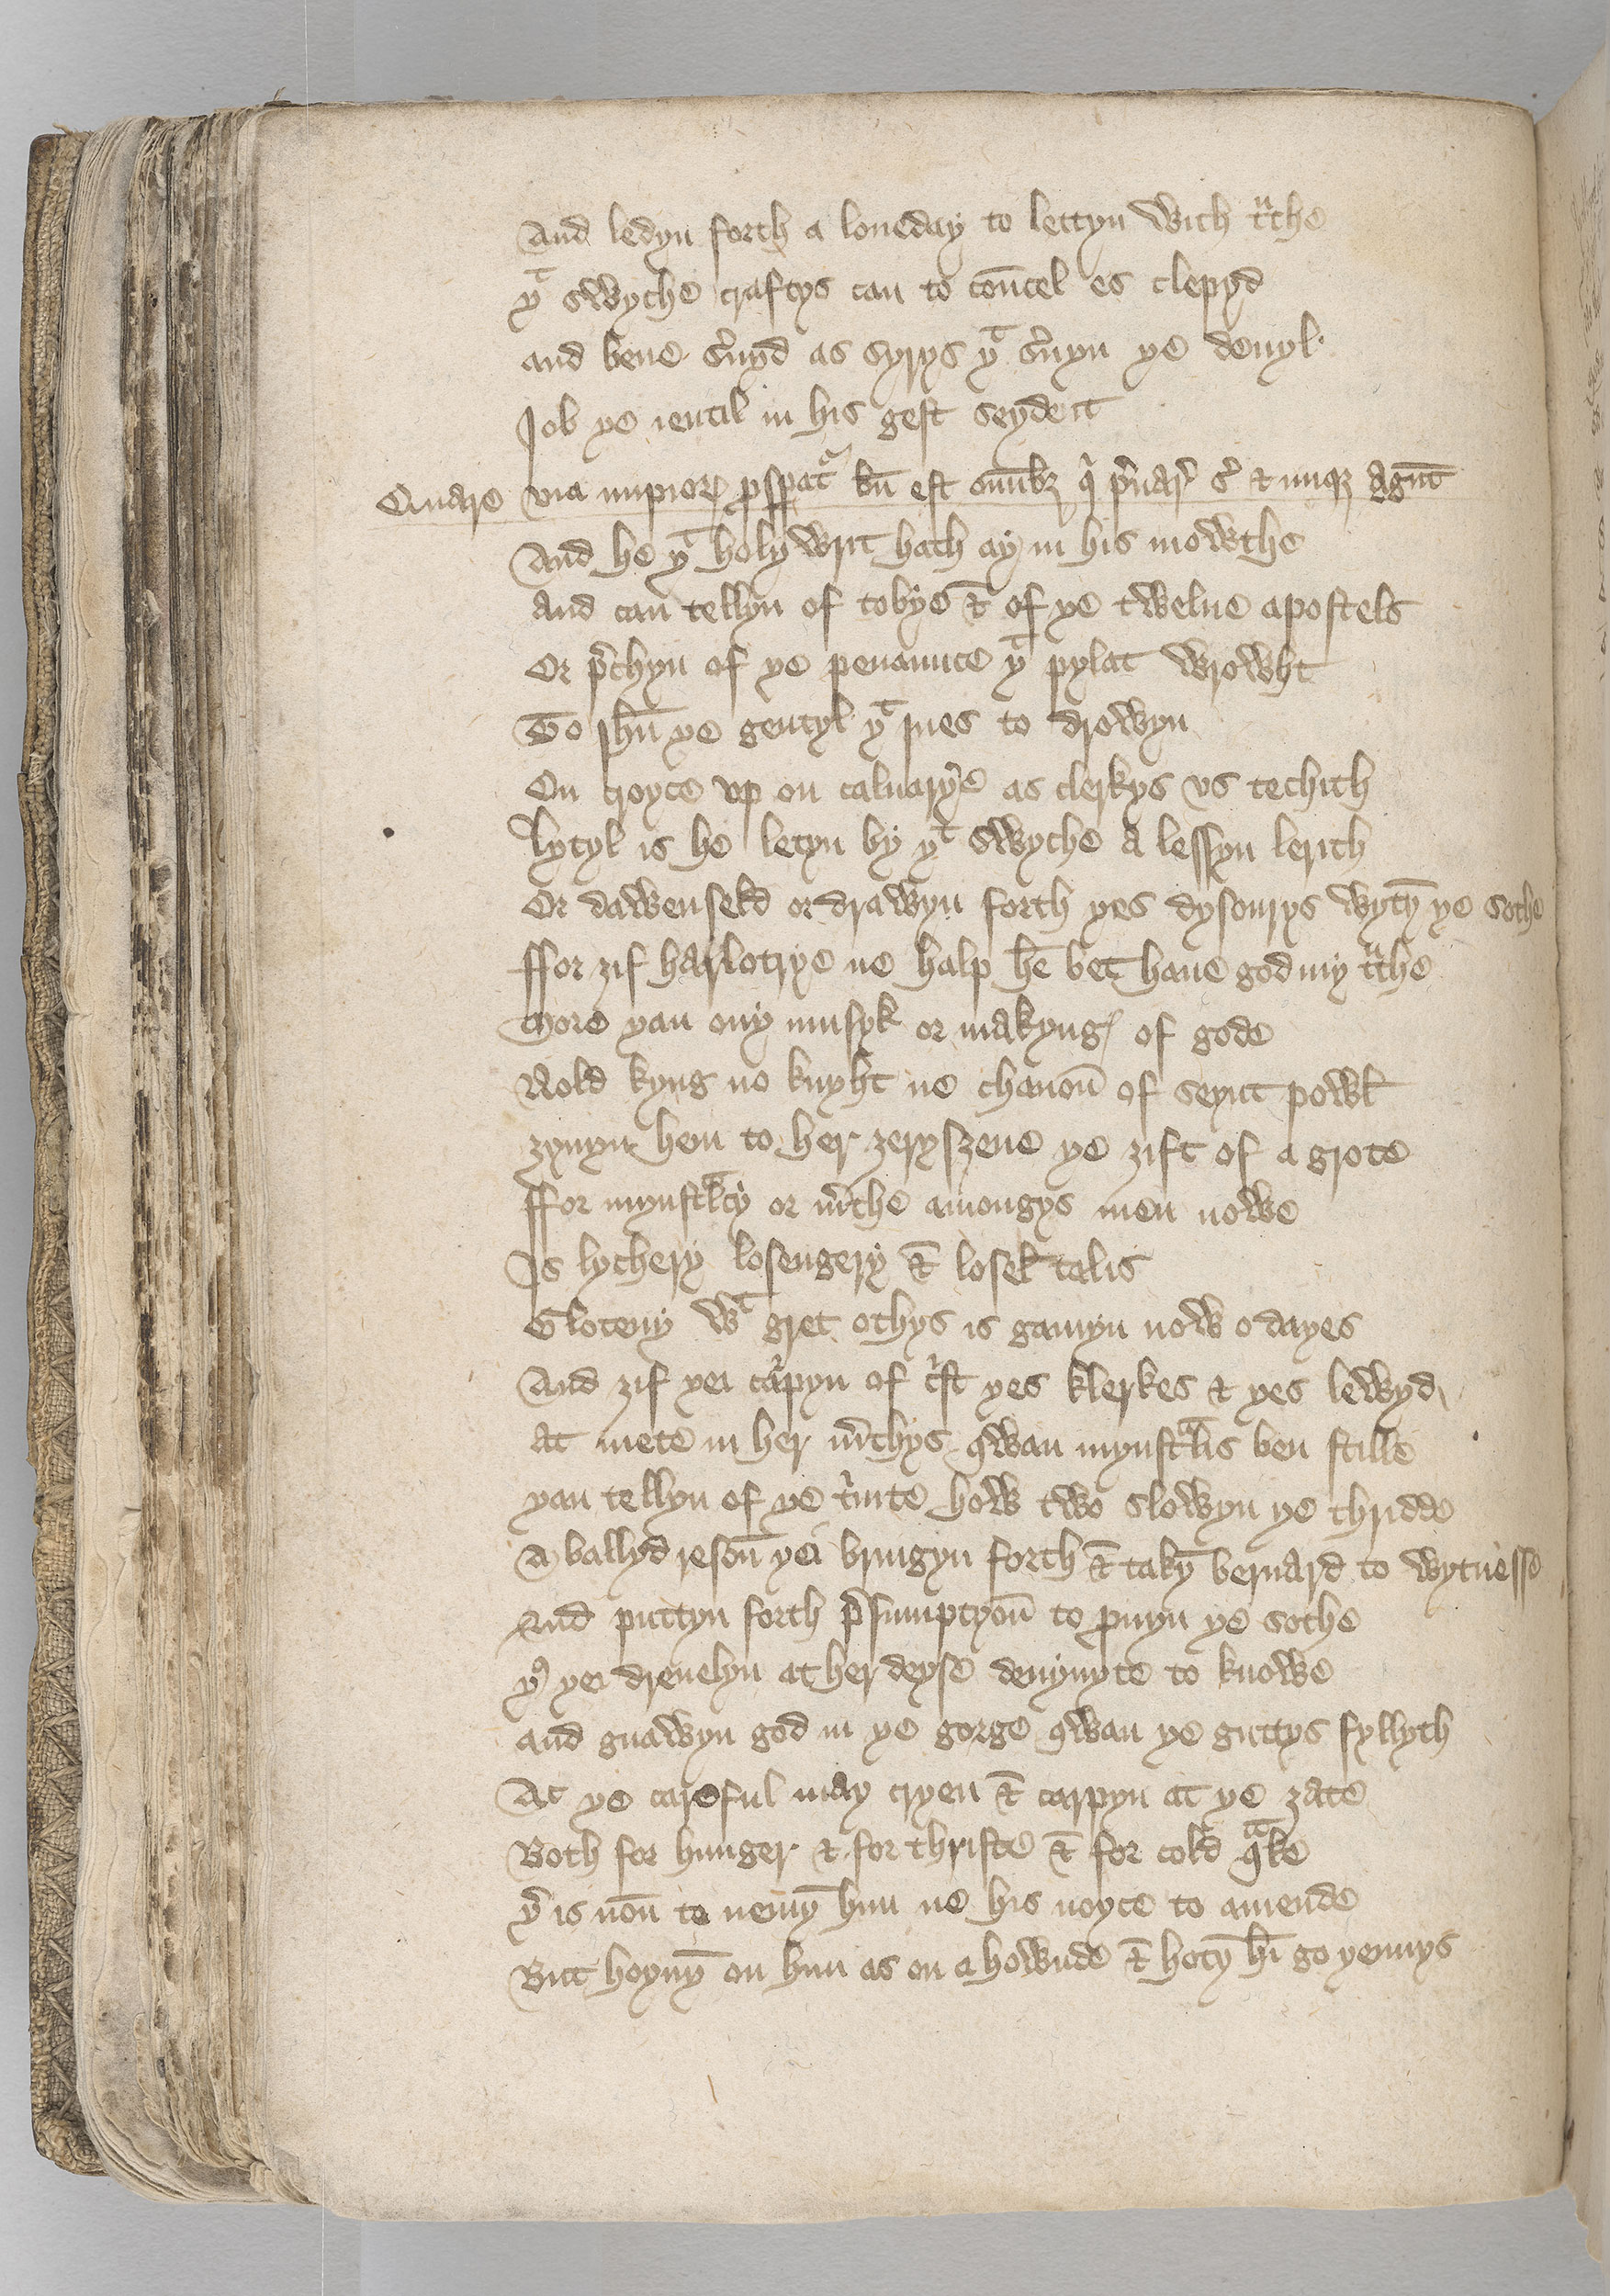 And ledyn forth a loueday to lettyn With tͥthe
yͭ sWyche craftys can to coūcel es clepyd
and bene sͬuyd as syrys yͭ sͬuyn ye deuyl
Job ye ientil in his gest seyde it
Quare via impioꝝ ꝓspatͬ bn̄ est om̄ibꝫ qͥ pͬuarͤ sͬ & iniqꝫ Agūt
And he yͭ holy Writ hath ay in his moWthe
And can tellyn of tobye & of ye tWelue apostels
Or pͬchyn of ye penaunce yͭ pylat WroWht
To ihū ye gentyl yͭ iues to droWyn
On croyce vp on caluarye as clerkys vs techith
lytyl is he letyn by yͭ sWyche A lessyn lerith
Or daWenseld or draWyn forth yes dysourys Wytȳ ye sothe
ffor ȝif harlotrye ne halp hē bet haue god my tͬthe
More yan ony musyk or makyng of gode
Nold kyng no knyht ne chanoū of seynt poWl
ȝyuyn hem to her ȝeryszeue ye ȝift of a grote
ffor mynstͬlcy or mͬthe amongys men noWe
Is lychery losengery & losel talis
Gloteny Wͭ gret othys is gamyn noW o dayes
And ȝif yei cͬpyn of cͥst yes klerkes & yes leWyd
At mete in her mͬthys qWan mynstͬlis ben stille
yan tellyn of ye tͥnite hoW tWo sloWyn ye thridde
A ballyd resoū yei bringyn forth & takȳ bernard to Wytnesse
And puttyn forth pͬsumptyoū to ꝓuyn ye sothe
yꝰ yei dreuelyn at her deyse deuynyte to knoWe
and gnaWyn god in ye gorge qWan ye guttys fyllyth
At ye careful may cryen & carpyn at ye ȝate
Both for hunger & for thriste & for cold qͣke
yͬ is noū to nemȳ him ne his noyce to amende
But hoynȳ on him as on a hoWnde & hotȳ hī go yennys